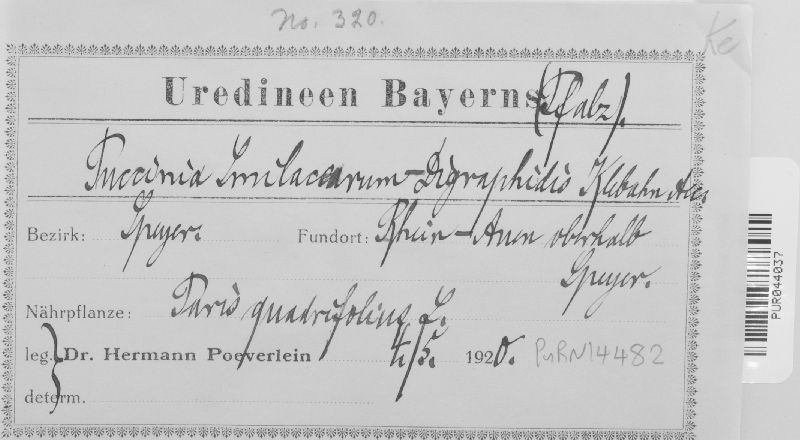 No. 320.
Ke
Uredineen Bayerns (Pfalz).
Puccinia Smilacearum-Digraphidis Klebahn
Bezirk: Speyer. Fundort: Rhein-Auen oberhalb
Speyer.
Nährpflanze: Paris quadrifolius L.
leg. Dr. Hermann Poeverlein 4/5. 1920. PURN14482
determ.
PUR044037